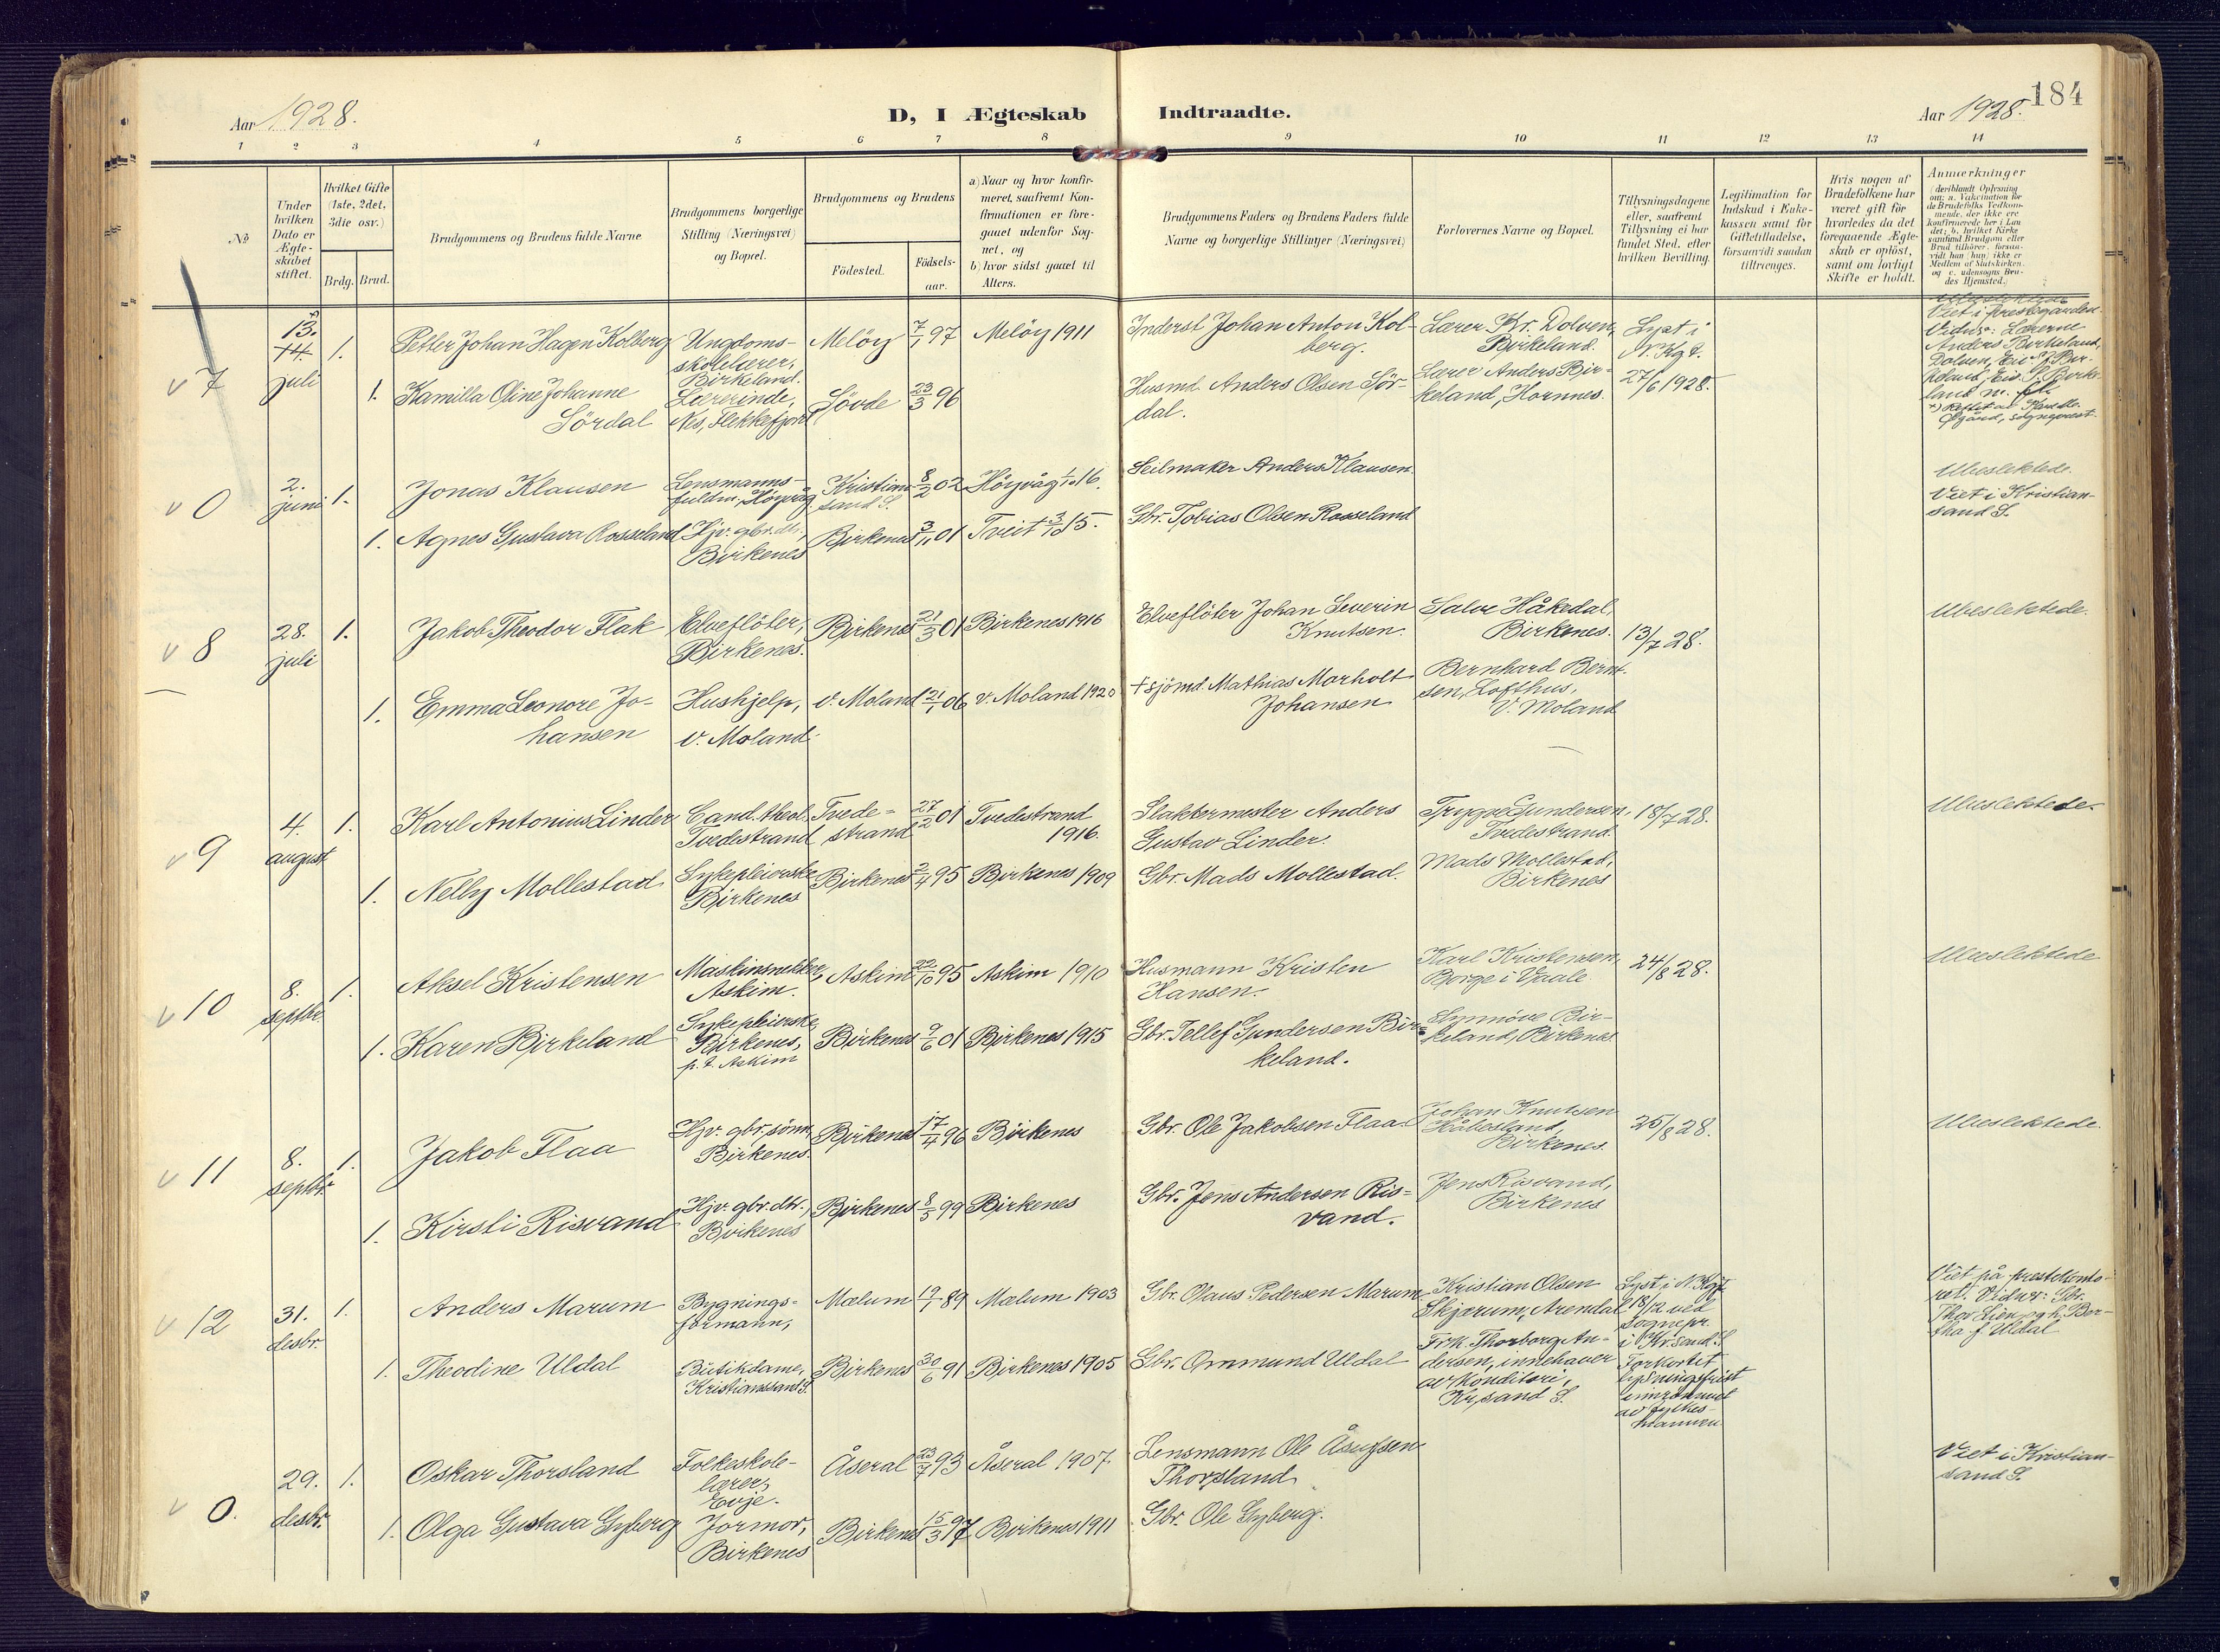 184
Aar 1928.
D, I Ægteskab Indtraadte.
Aar 1928.
1 2 3 4 5 6 7 8 9 10 11 12 13 14
No
Under hvilken Dato er Ægteskabet stiftet.
Hvilket Gifte (1ste, 2det, 3die osv.)
Brdg. Brud.
Brudgommens og Brudens fulde Navne
Brudgommens borgerlige Stilling (Næringsvei) og Bopæl.
Brudgommens og Brudens
Födested.
Födselsaar.
a) Naar og hvor konfirmeret, saafremt Konfirmationen er foregaaet udenfor Sognet, og
b) hvor sidst gaaet til Alters.
Brudgommens Faders og Brudens Faders fulde Navne og borgerlige Stillinger (Næringsvei)
Forlovernes Navne og Bopæl.
Tillysningsdagene eller, saafremt Tillysning ei har fundet Sted, efter hvilken Bevilling.
Legitimation for Indskud i Enkekassen samt for Giftetilladelse, forsaavidt saadan tiltrænges.
Hvis nogen af Brudefolkene har været gift för hvorledes da det foregaaende Ægteskab er oplöst, samt om lovligt Skifte er holdt.
Anmærkninger
7
13. 14. juli
1. Petter Johan Hagen Kolberg
Ungdomsskolelærer, Birkeland.
Melöy 7/1 97 Melöy 1911
Inderst Johan Anton Kolberg.
Lærer Kr. Dolven, Birkeland.
Lyst i N. Kgt. 27/6 1928.
Viet i prestegården.
Vidner: Lærerne
Anders Birkeland,
1. Kamilla Oline Johanne Sördal
Lærerinde, Nes, Flekkefjord
Sövde 23/3 96
Husmd. Anders Olsen Sördal.
Lærer Anders Birkeland, Hornnes.
0
2. juni
1. Jonas Klausen
Lensmannsfuldm., Hövåg
Kristiansand S. 8/2 02 Hövåg 1/10 16.
Seilmaker Anders Klausen.
Ubeslektede.
Viet i Kristiansand S.
1. Agnes Gustava Rosseland
Hjv. gbr. dtr., Birkenes
Birkenes 3/11 01 Tveit 3/10 15.
Gbr. Tobias Olsen Rosseland
8
28. juli
1. Jakob Theodor Flak
Elveflöter, Birkenes.
Birkenes 21/3 01 Birkenes 1916
Elveflöter Johan Severin Knutsen.
Salve Håkedal, Birkenes.
13/7 28.
Ubeslektede.
1. Emma Leonore Johansen
Hushjelp, v. Moland.
v. Moland 21/1 06 v. Moland 1920
† sjömd. Mathias Morholt Johansen
Bernhard Berntsen, Lofthus, V. Moland
9
4. august
1. Karl Antonius Linder
Cand. theol. Tvedestrand
Tvedestrand 27/2 01 Tvedestrand 1916.
Slaktermester Anders Gustav Linder.
Trygve Gundersen, Tvedestrand.
18/7 28.
Ubeslektede.
1. Nelly Mollestad
Sykepleierske Birkenes
Birkenes 2/4 95 Birkenes 1909
Gbr. Mads Mollestad.
Mads Mollestad, Birkenes
10
8. septbr.
1. Aksel Kristensen
Maskinsnekker, Askim.
Askim 22/10 95 Askim 1910
Husmann Kristen Hansen.
Karl Kristensen, Borge i Vaale
24/8 28.
Ubeslektede
1. Karen Birkeland
Sykepleierske, Birkenes, p.t. Askim
Birkenes 9/6 01 Birkenes 1915
Gbr. Tellef Gundersen Birkeland.
Synnöve Birkeland, Birkenes
11
8. septbr.
1. Jakob Flaa
Hjv. gbr. sönn, Birkenes.
Birkenes 17/4 96 Birkenes
Gbr. Ole Jakobsen Flaa.
Johan Knutsen Håbesland, Birkenes.
25/8 28.
Ubeslektede.
1. Kirsti Risvand
Hjv. gbr. dtr. Birkenes
Birkenes 8/5 99 Birkenes
Gbr. Jens Andersen Risvand.
Jens Risvand, Birkenes
12
31. desbr.
1. Anders Marum
Bygningsformann,
Mælum 19/1 89 Mælum 1903
Gbr. Olaus Pedersen Marum
Kristian Olsen Skjærum, Arendal
Lyst i N. Kgt 18/12 ved sognepr. i Kr.sand S. Forkortet lysningsfrist innrömmet av fylkesmannen
Viet på prestekontoret. Vidner: Gbr. Thor Lien og h. Bertha f. Uldal
1. Theodine Uldal
Butikdame, Kristianssand S.
Birkenes 30/6 91 Birkenes 1905
Gbr. Ommund Uldal
Frk. Thorborg Andersen, innehaver av konditori, Kr.sand S.
0.
29. desbr.
1. Oskar Thorsland
Folkeskolelærer, Evje.
Åseral 23/7 93 Åseral 1907
Lensmann Ole Åsulfsen Thorsland
Viet i Kristiansand S.
1. Olga Gustava Gyberg
Jormor, Birkenes
Birkenes 15/3 97 Birkenes 1911
Gbr. Ole Gyberg.